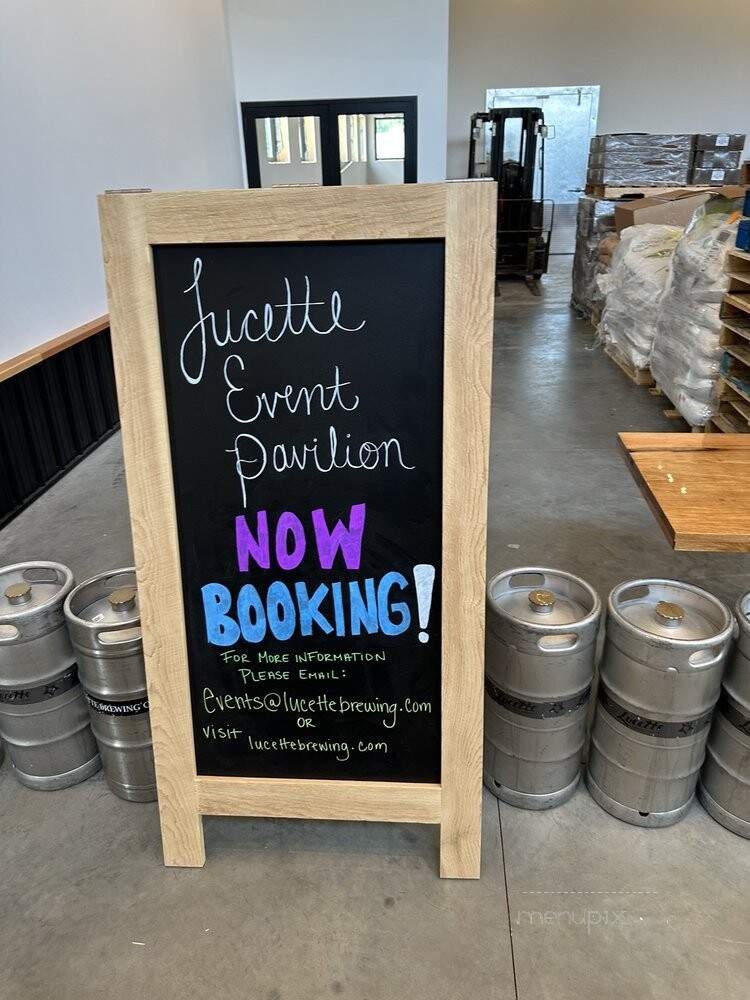 Lucette
Event
Pavilion
NOW
BOOKING!
FOR MORE INFORMATION
PLEASE EMAIL:
events@lucettebrewing.com
OR
visit lucettebrewing.com
Lucette
TE BREWING C
Lucette
Lucette
menupix